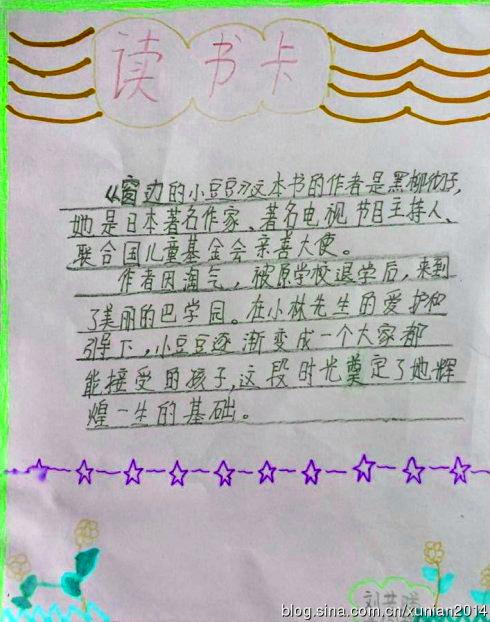 读书卡
《窗边的小豆豆》这本书的作者是黑柳彻子,
她是日本著名作家、著名电视节目主持人、
联合国儿童基金会亲善大使。
作者因淘气，被原学校退学后，来到
了美丽的巴学园。在小林先生的爱护和
引导下，小豆豆逐渐变成一个大家都
能接受的孩子,这段时光奠定了她辉
煌一生的基础。
blog.sina.com.cn/xunian2014